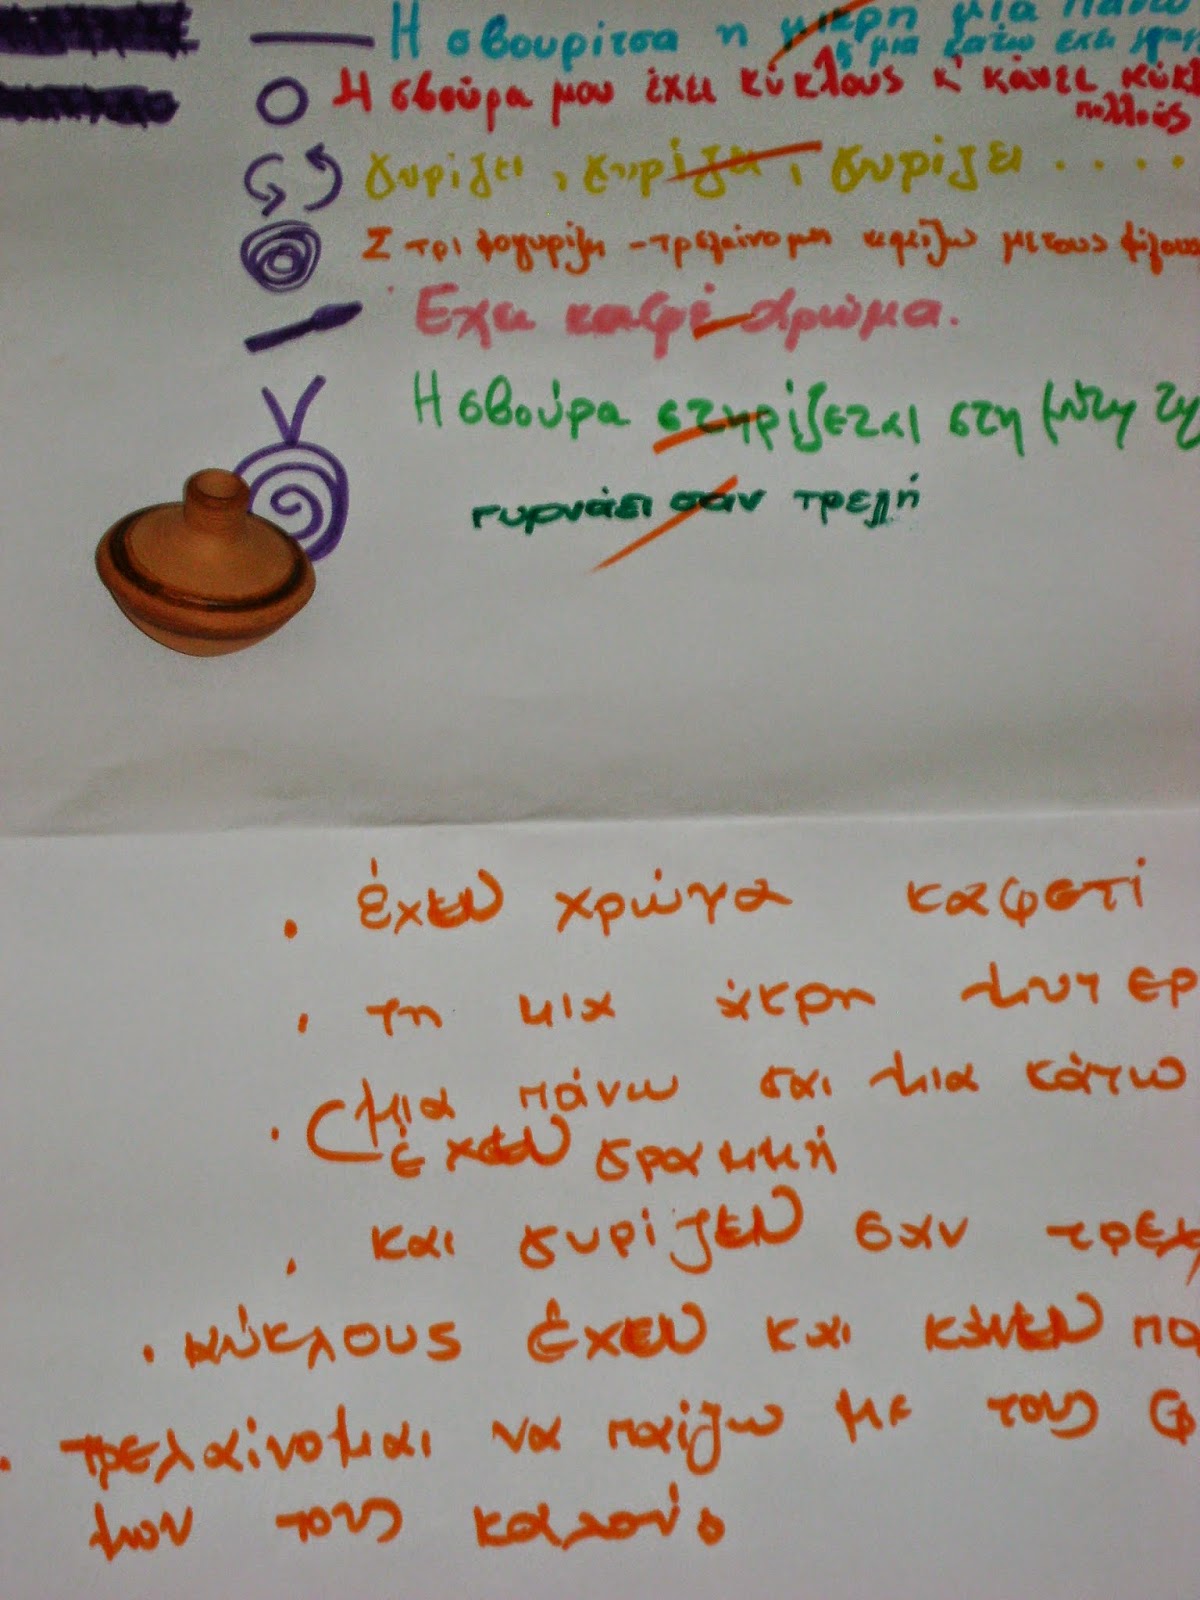 Η σβουρίτσα η μικρή μια πάνω
ς μια κατω εχει
Η σβούρα μου έχει κύκλους κ' κάνει
πολλούς
γυρίζει, γυρίζει, γυρίζει ....
Στριφογυρίζει - τρελαίνομαι παίζω με τους φίλους
Έχει καφέ χρώμα.
Η σβούρα στηρίζεται στη μύτη της
γυρνάει σαν τρελή
. έχει χρώμα καφετί
. τη μια άκρη
. μια πάνω και μια κάτω
έχει γραμμή
. και γυρίζει σαν
. κύκλους έχει και κάνει
. τρελαίνομαι να παίζω με τους
μου τους καλούς